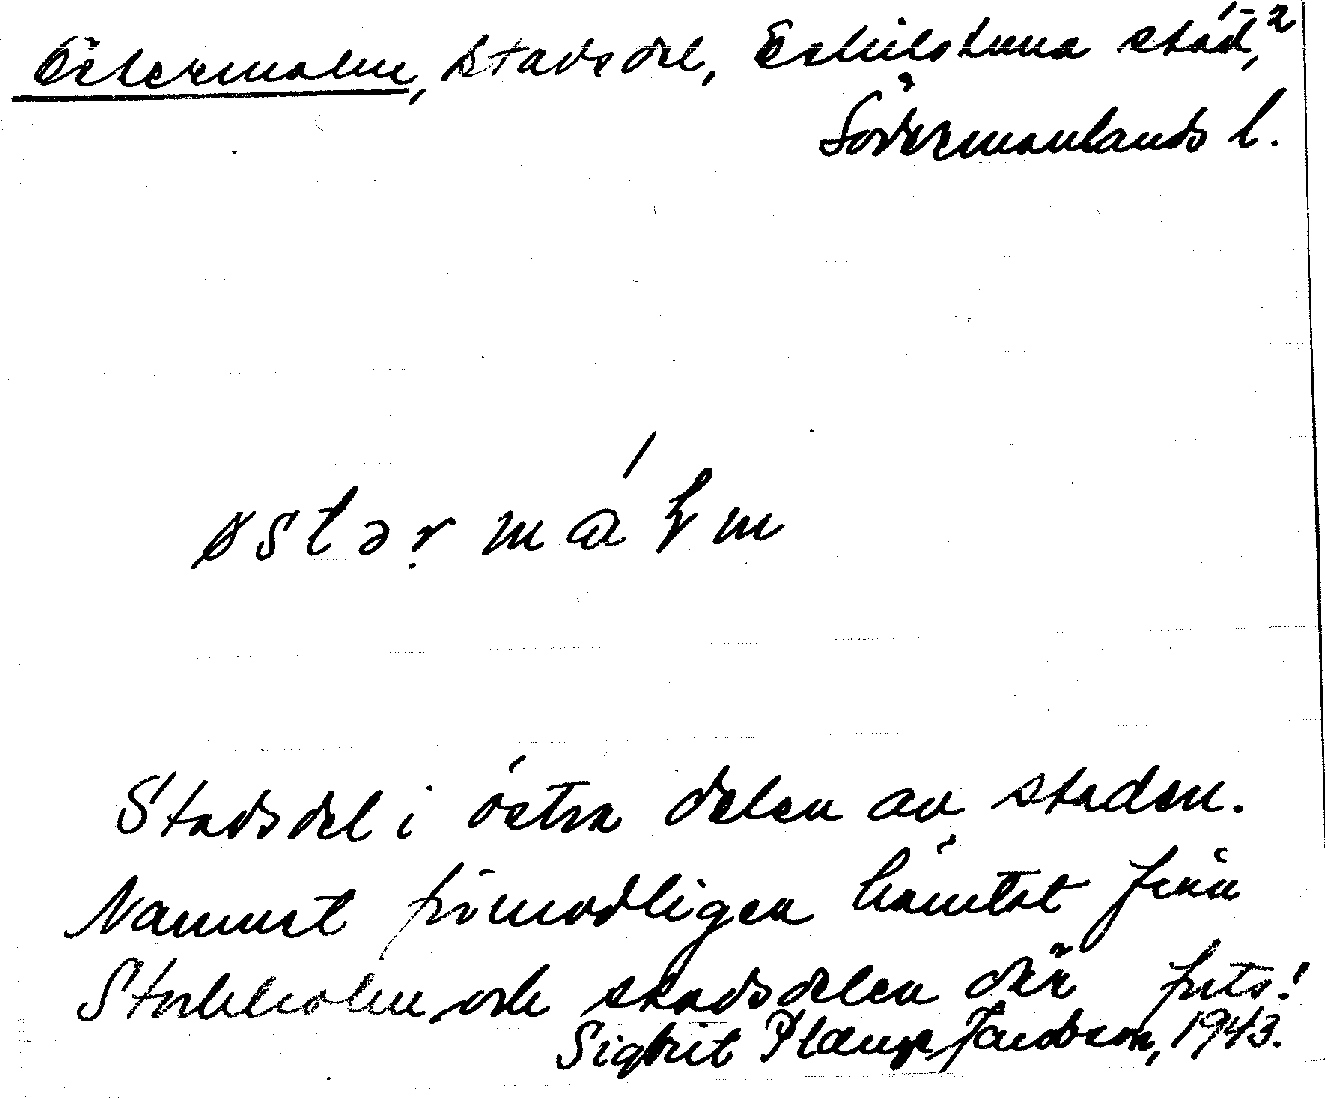 Östermalm, stadsdel, Eskilstuna stad,²
Södermanlands l.
østərmálm
Stadsdel i östra delen av staden.
Namnet förmodligen hämtat från
Stockholm och stadsdelen där forts!
Sigbrit Plænge Jacobson, 1943.